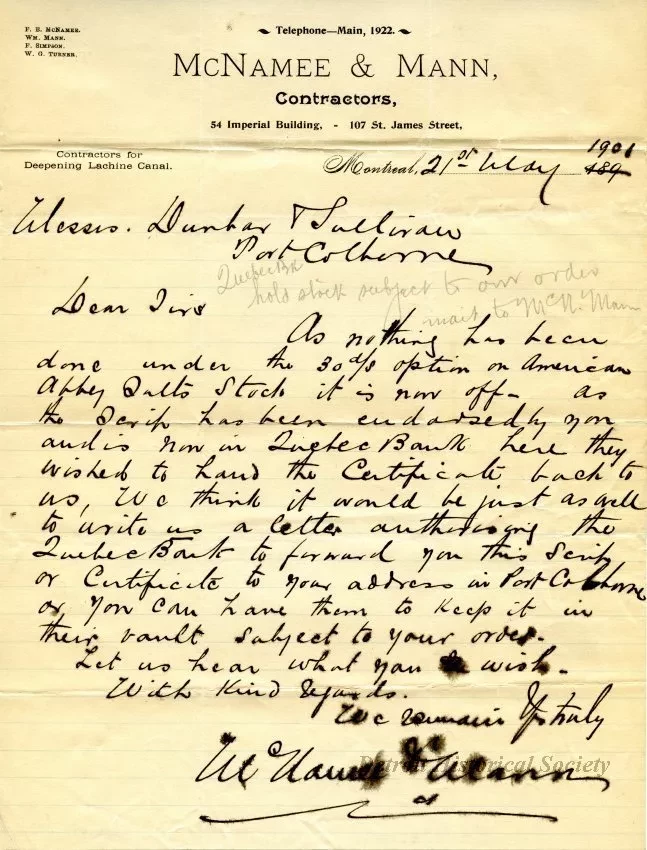 F. B. McNamee.
Wm. Mann.
F. Simpson.
W. G. Turner.
Telephone—Main, 1922.
McNamee & Mann,
Contractors,
54 Imperial Building, - 107 St. James Street,
Contractors for
Deepening Lachine Canal.
Montreal, 21st May 1901
189
Messrs. Dunbar & Sullivan
Port Colborne
Quebec Bk
hold stock subject to our order
mail to McN. Mann
Dear Sirs
As nothing has been
done under the 30 d/s option on American
Abbey Salts Stock it is now off- as
the Scrip has been endorsed by you
and is now in Quebec Bank here they
wished to hand the Certificate back to
us, We think it would be just as well
to write us a letter authorising the
Quebec Bank to forward you this Scrip
or Certificate to your address in Port Colborne
or you can have them to keep it in
their vault subject to your order.
Let us hear what you wish.
With Kind regards.
We remain Yrs truly
McNamee & Mann
Petrolia Historical Society